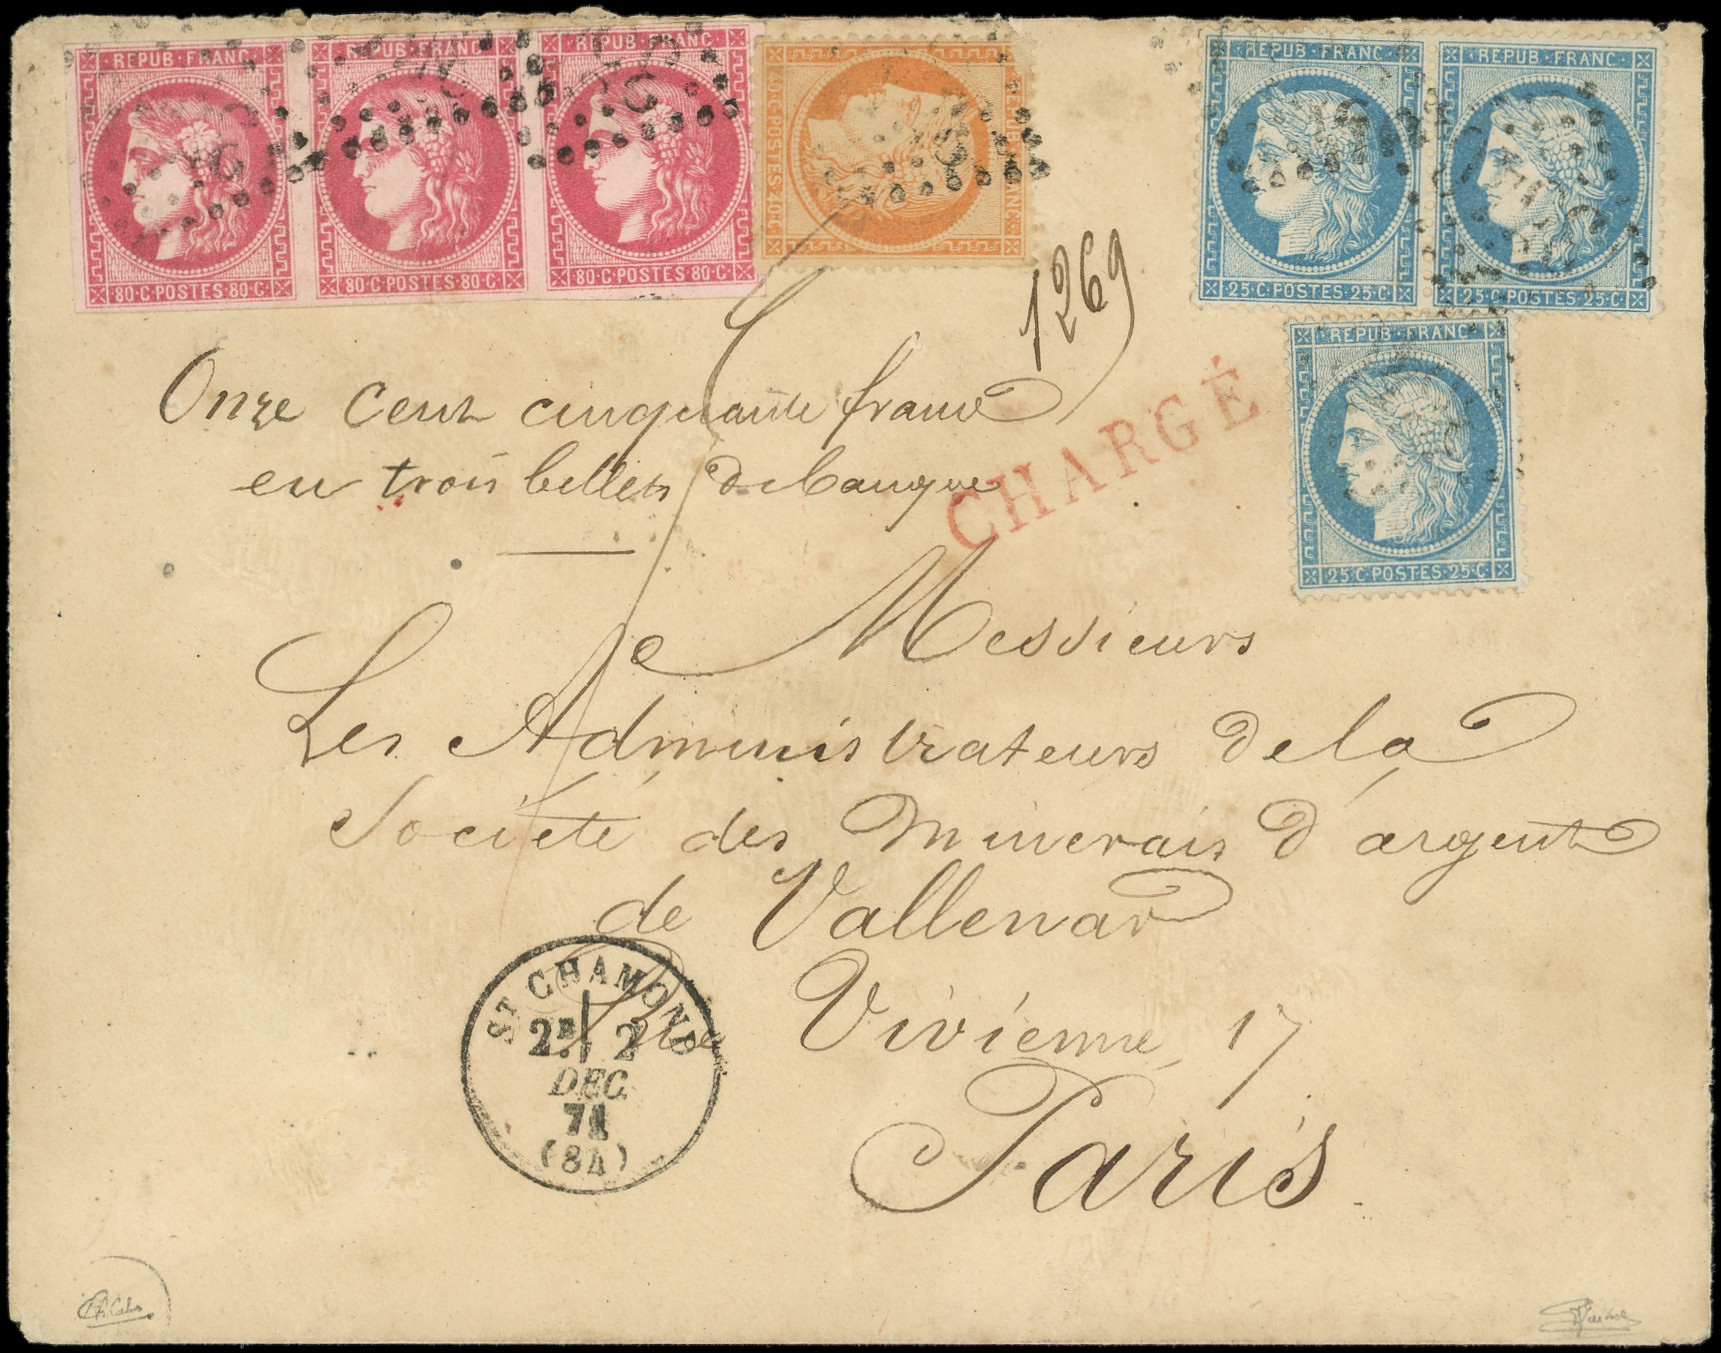 REPUB·FRANC·
80·C·POSTES·80·C·
REPUB·FRANC·
80·C·POSTES·80·C·
REPUB·FRANC·
80·C·POSTES·80·C·
REPUB·FRANC·
40·C·POSTES·40·C·
REPUB·FRANC·
25·C·POSTES·25·C·
REPUB·FRANC·
25·C·POSTES·25·C·
REPUB·FRANC·
25·C·POSTES·25·C·
1269
Onze cent cinquante francs
en trois billets de banque
CHARGÉ
Messieurs
Les Administrateurs de la
Société des Minerais d'argent
de Vallenar
Rue Vivienne, 17
Paris
ST CHAMOND
2E 2
DEC.
71
(84)